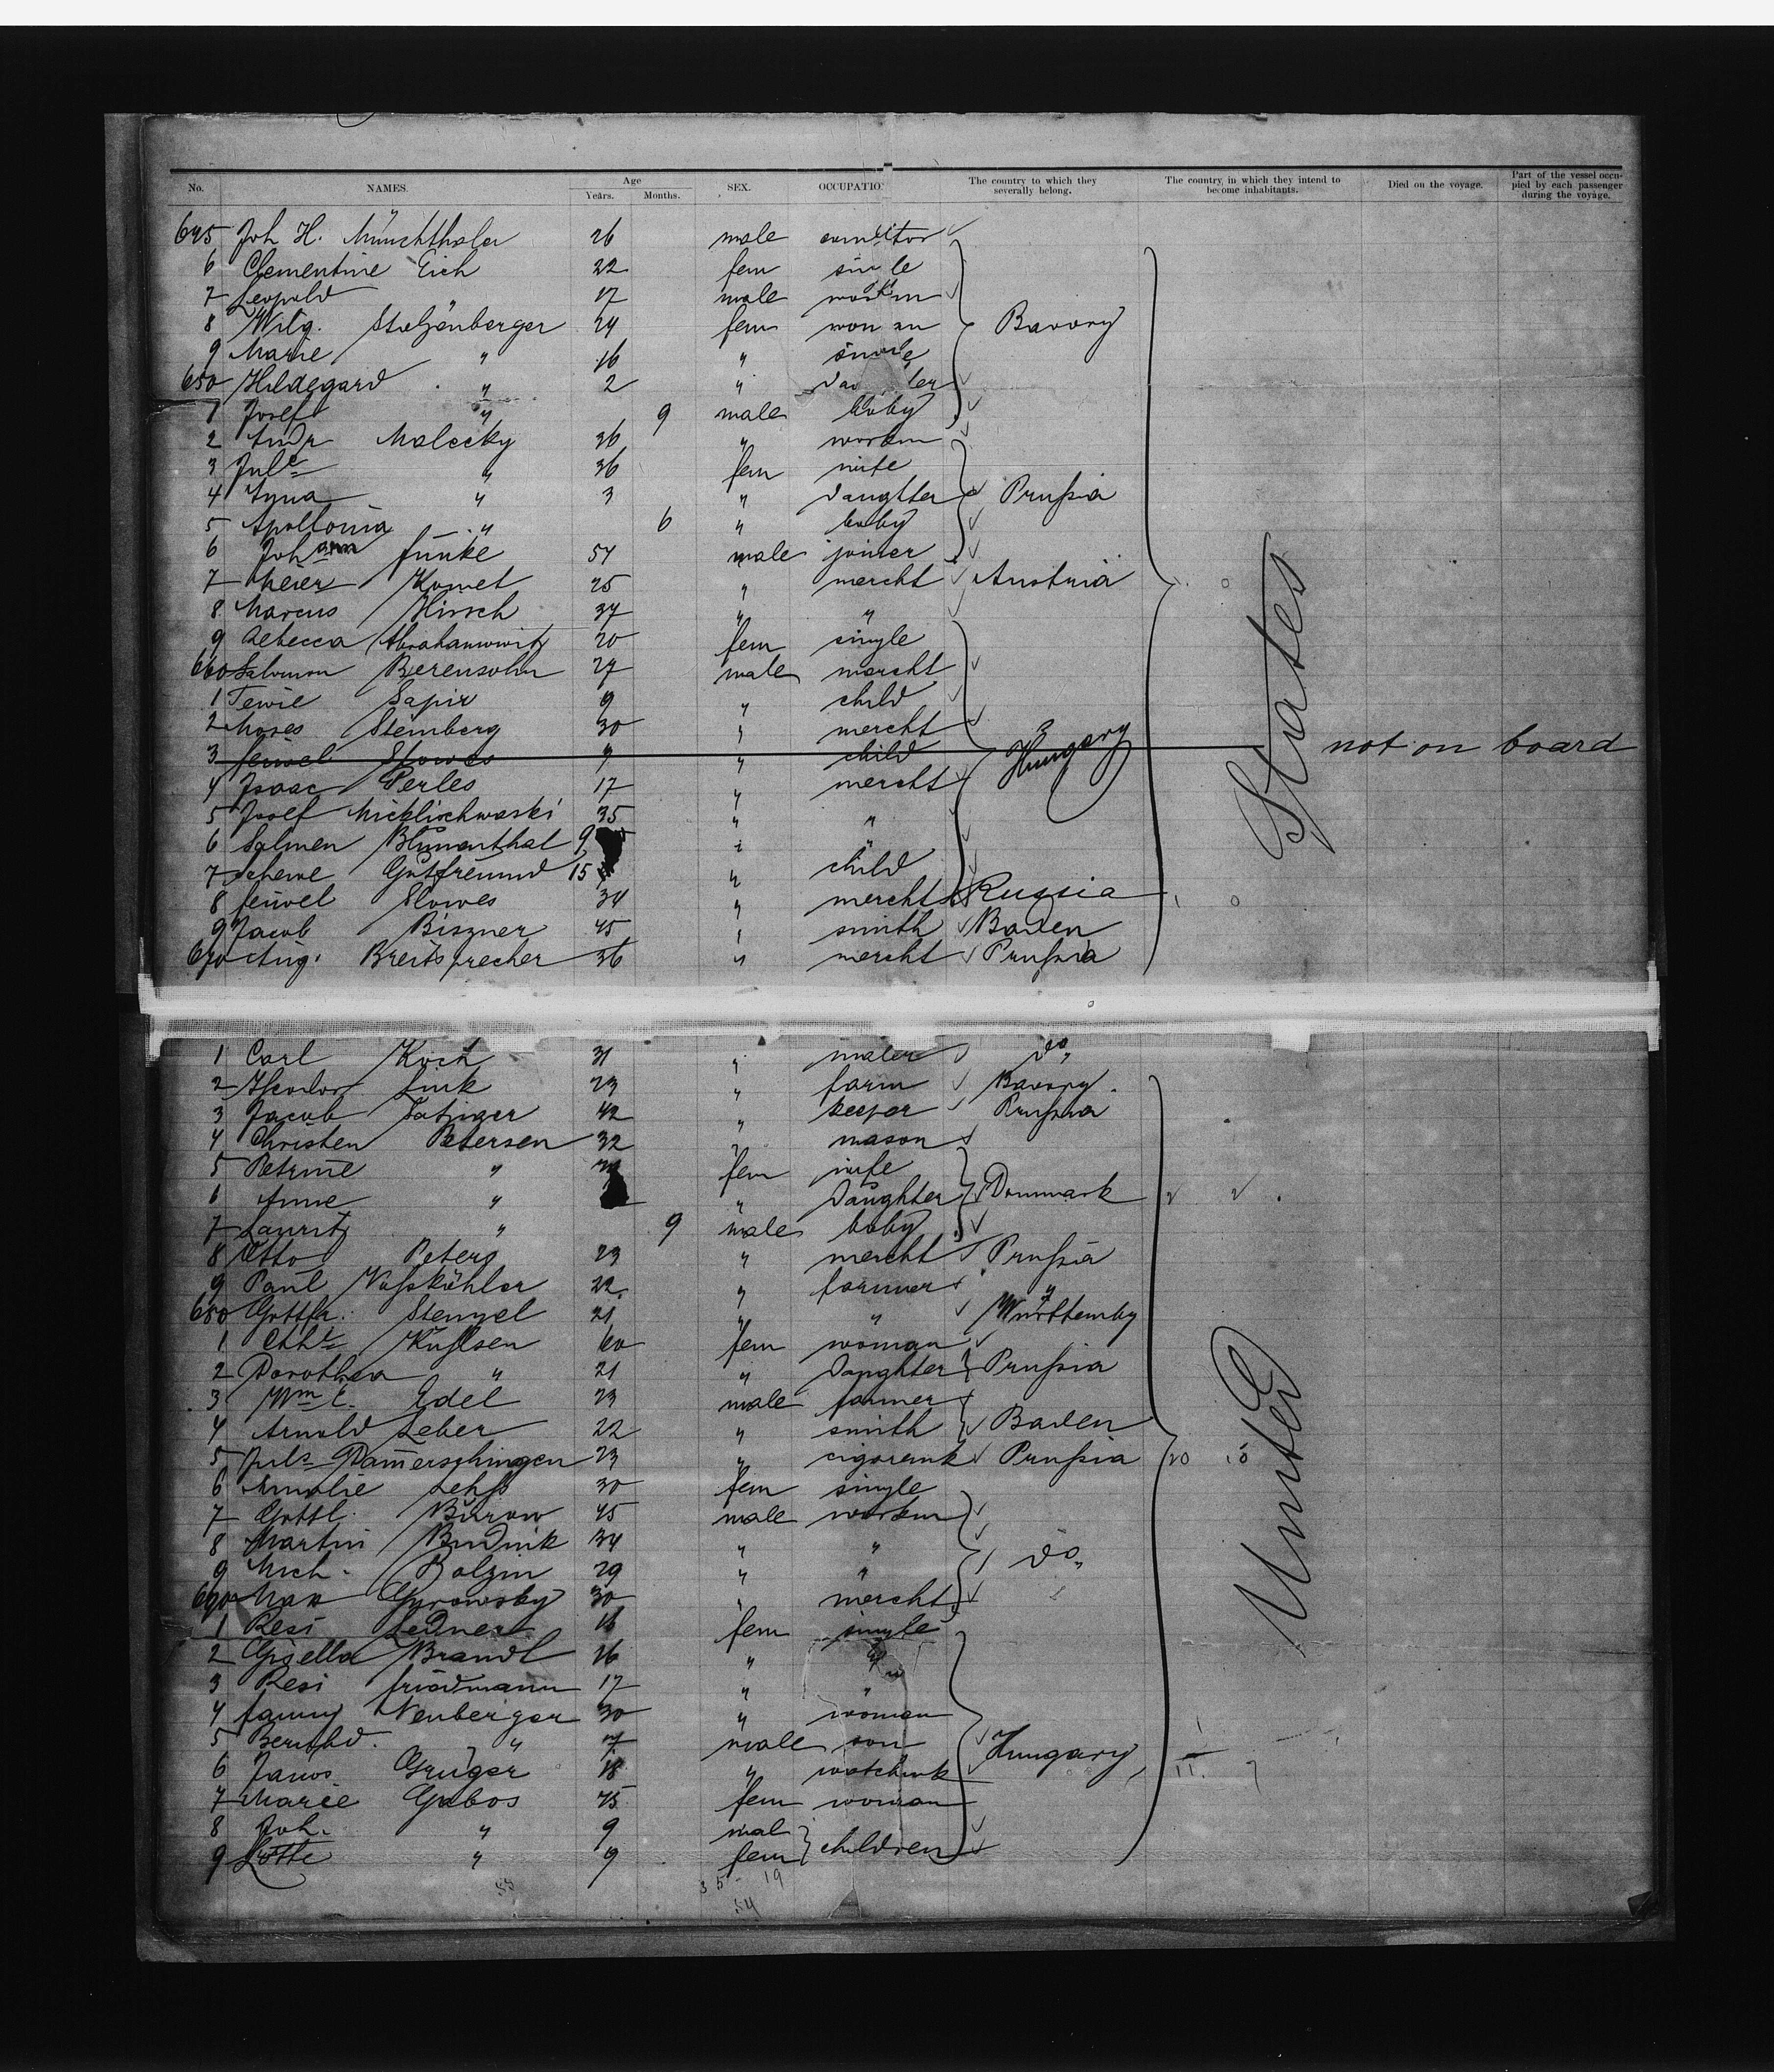 No. NAMES. Age Years. Months. SEX. OCCUPATION The country to which they severally belong. The country, in which they intend to become inhabitants. Died on the voyage. Part of the vessel occupied by each passenger during the voyage.
645 Joh H. Münchthaler 26 male conditor
6 Clementine Eich 22 fem single
7 Leopold 17 male workm
8 Wilg. Stolzenberger 24 fem woman Bavary
9 Marie " 16 " single
650 Hildegard " 2 " daughter
1 Josef " 9 male baby
2 Andr Malecky 36 " workm
3 Jule " 36 fem wife
4 Anna " 3 " daughter Prußia
5 Apollonia " 6 " baby
6 Johann Funke 54 male joiner
7 Meier Komet 25 " mercht Austria
8 Marcus Hirsch 37 " "
9 Rebecca Abrahamowitz 20 fem single
660 Salomon Berensohn 27 male mercht
1 Tewie Sapir 9 " child
2 Moses Sternberg 30 " mercht
3 feiwel Slowes 9 " child Hungary not on board
4 Isaac Perles 17 " mercht
5 Josef Micklischwaski 35 " "
6 Salmen Blumenthal 9 " "
7 Schewe Gutfreund 15 " child
8 feiwel Slowes 34 " mercht Russia
9 Jacob Biszner 45 " smith Baden
670 Aug. Breitsprecher 36 " mercht Prußia
States
1 Carl Koch 31 " maler do
2 Theodor Link 23 " farm Bavary.
3 Jacob Satziger 42 " keeper Prußia
4 Christen Petersen 32 " mason
5 Petrine " fem wife
6 Anne " " Daughter Danmark
7 Lauritz " 9 male baby
8 Otto Peters 23 " mercht Prußia
9 Paul Voßköhler 22 " farmer "
680 Gottfr. Stengel 21 " " Württemby
1 Cthe Kuhlsen 60 fem woman
2 Dorothea " 21 " Daughter Prußia
3 Wm E. Edel 23 male farmer
4 Arnold Leber 22 " smith Baden
5 Juls Damerschingen 23 " cigarmk Prußia
6 Amalie Lehß 30 fem single
7 Gottl. Burow 45 male workm
8 Martin Budnik 34 " "
9 Mich. Bolzin 29 " " do
690 Max Gyrowsky 30 " mercht
1 Resi Ledner 18 fem single
2 Gisella Brandl 26 " "
3 Resi friedmann 17 " "
4 fanny Neuberger 30 " woman
5 Berthld. " 7 male son Hungary
6 Janos Gruger 18 " watchmk
7 Marie Gabos 45 fem woman
8 Joh. " 9 mal children
9 Lotte " 9 fem
United
35 - 19
54